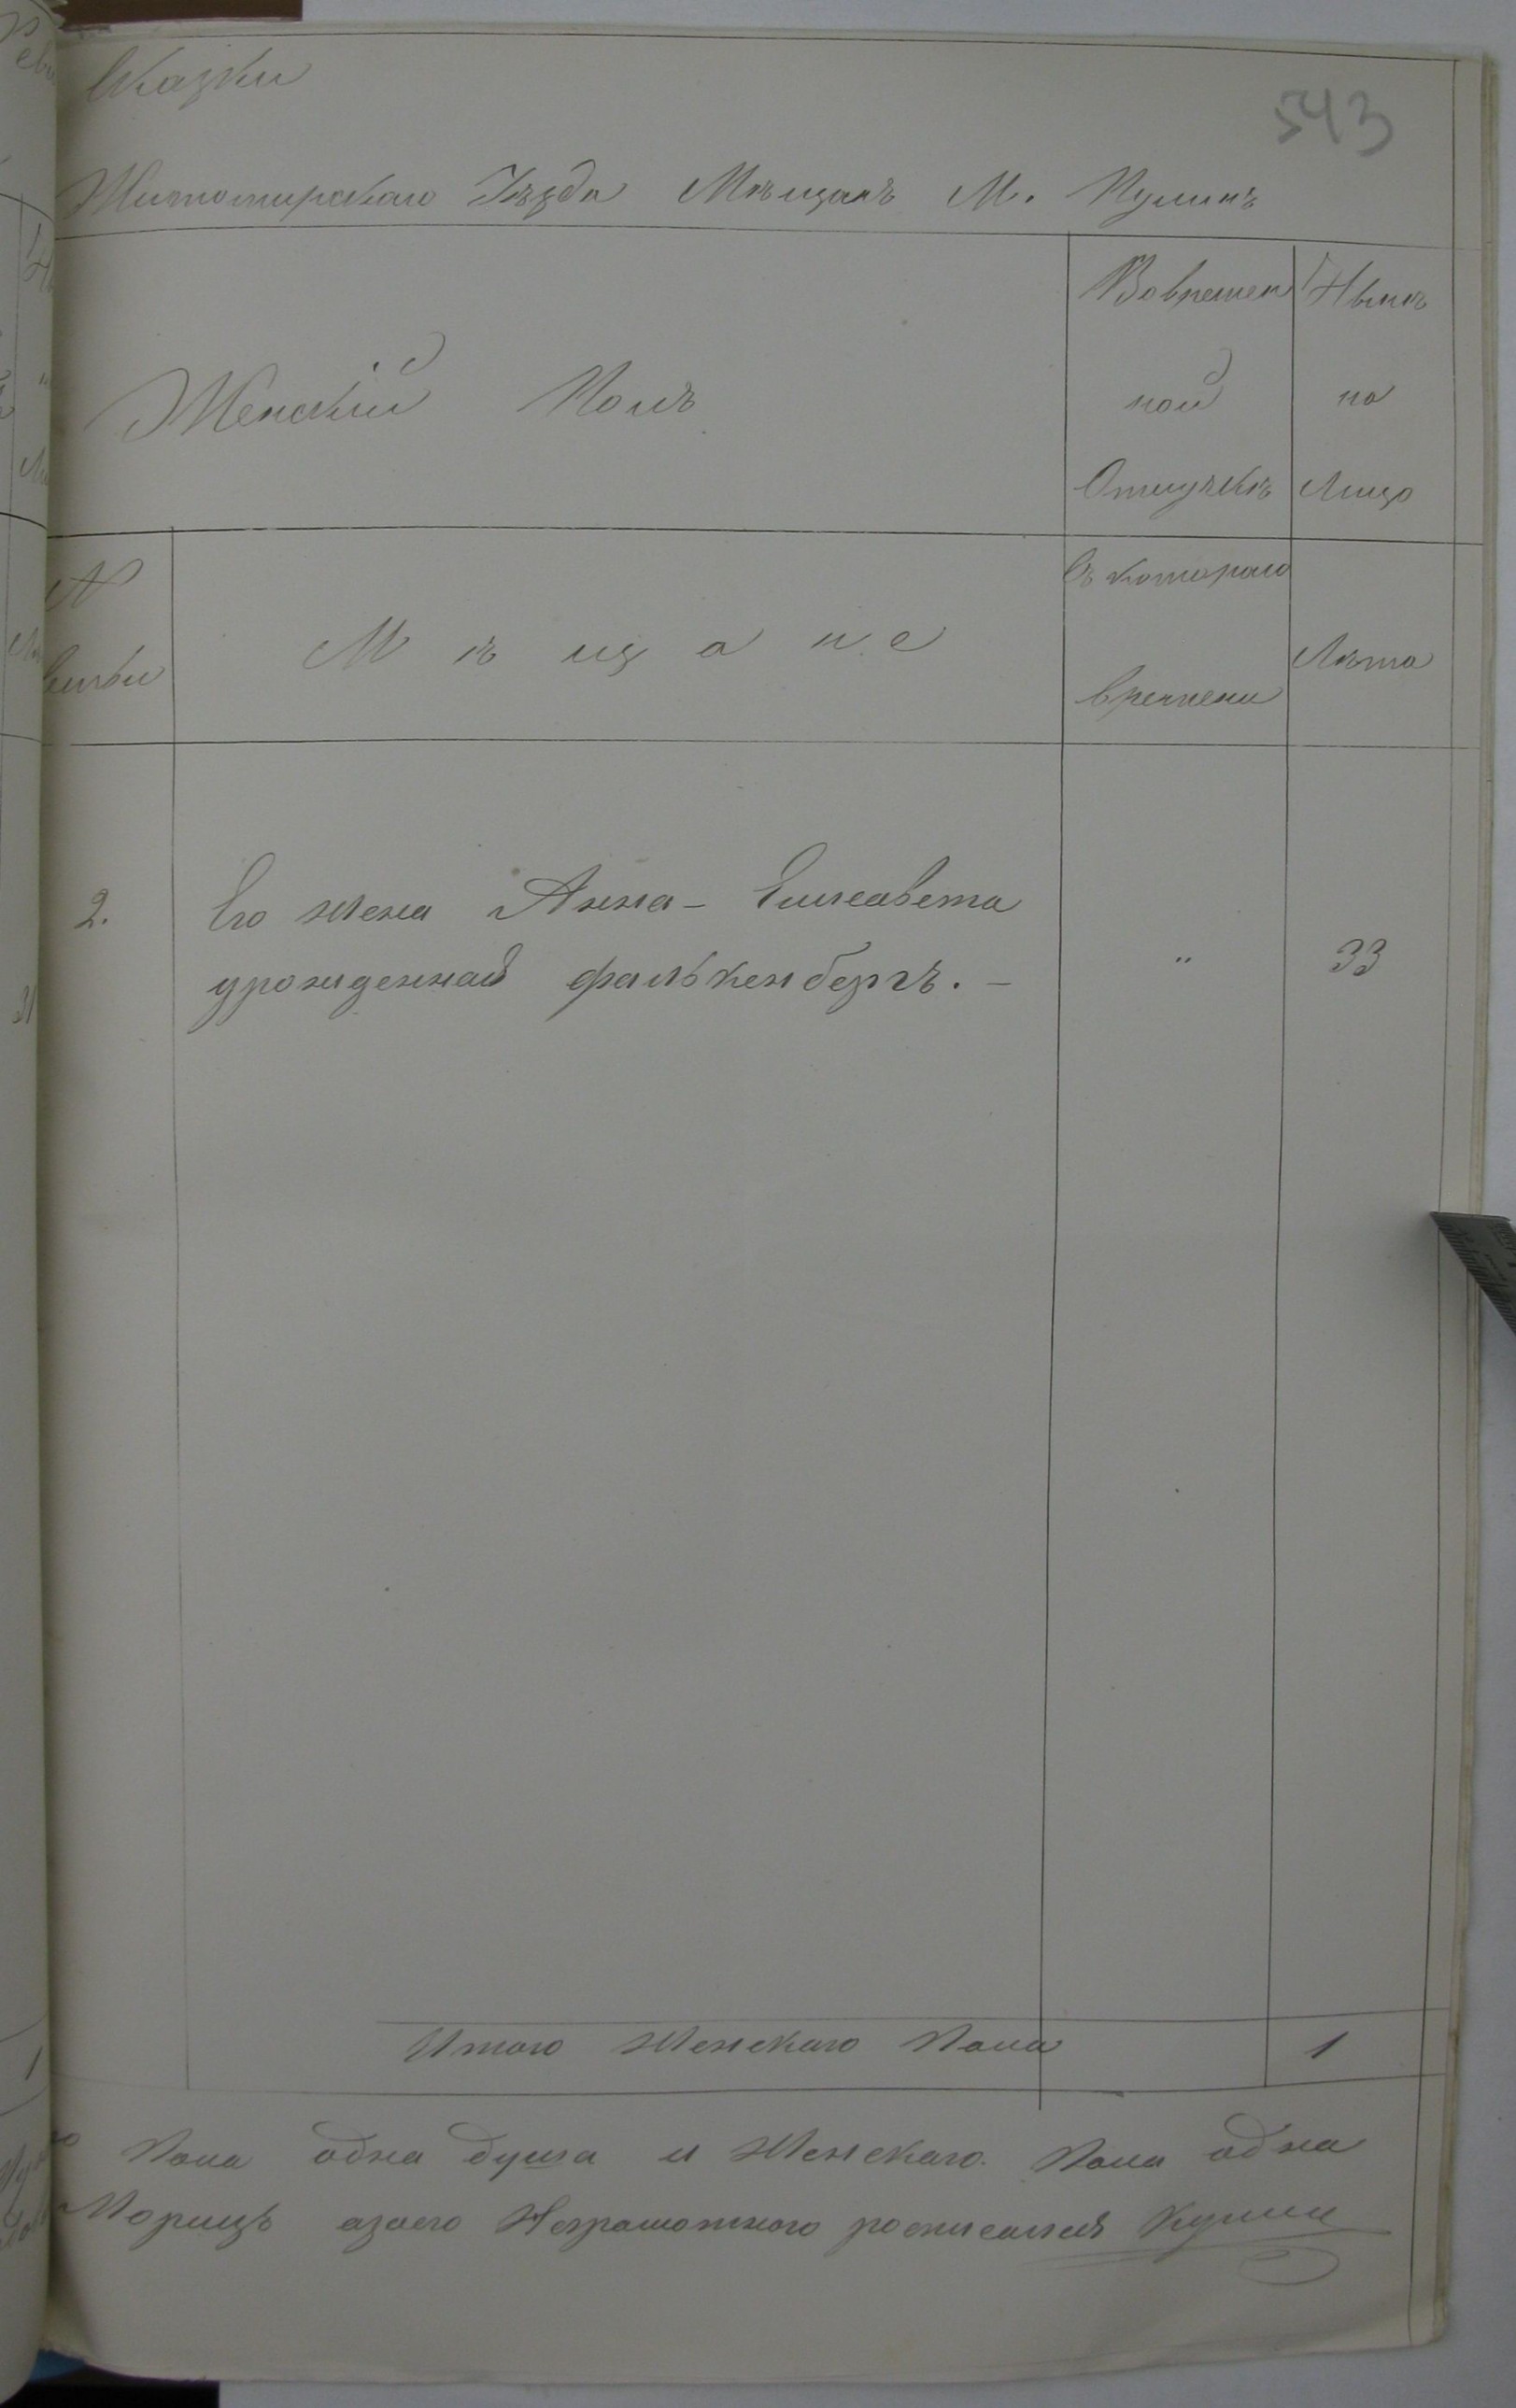 Сказки
543
Житомирскаго Уѣзда Мѣщанъ М. Пулинъ
Женскій Полъ
Вовремен
ной
Отлучкѣ
Нынѣ
на
Лицо
№
Семьи
Мѣщане
Съ котораго
времени
Лѣта
2.
Его жена Анна-Елисавета
урожденная Фалькенбергъ. -
"
33
Итого женскаго Пола
1
Пола одна душа и Женскаго Пола одна
Морицъ азаего Неграмотного росписался